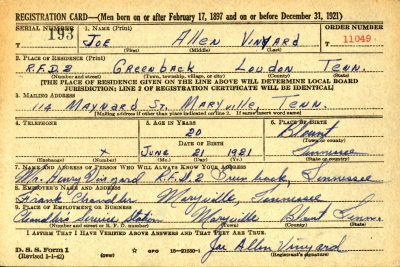 REGISTRATION CARD—(Men born on or after February 17, 1897 and on or before December 31, 1921)
SERIAL NUMBER 1. NAME (Print) ORDER NUMBER
193 Joe Allen Vineyard 11049
(First) (Middle) (Last)
2. PLACE OF RESIDENCE (Print)
R.F.D.2 Greenback Loudon Tenn.
(Number and street) (Town, township, village, or city) (County) (State)
[THE PLACE OF RESIDENCE GIVEN ON THE LINE ABOVE WILL DETERMINE LOCAL BOARD
JURISDICTION; LINE 2 OF REGISTRATION CERTIFICATE WILL BE IDENTICAL]
3. MAILING ADDRESS
114 Maynard St. Maryville, Tenn.
[Mailing address if other than place indicated on line 2. If same insert word same]
4. TELEPHONE 5. AGE IN YEARS 6. PLACE OF BIRTH
20 Blount
DATE OF BIRTH (Town or county)
x June 21 1921 Tennessee
(Exchange) (Number) (Mo.) (Day) (Yr.) (State or country)
7. NAME AND ADDRESS OF PERSON WHO WILL ALWAYS KNOW YOUR ADDRESS
Mr. Henry Vineyard R.F.D.2 Greenback, Tennessee
8. EMPLOYER'S NAME AND ADDRESS
Frank Chandler, Maryville, Tennessee
9. PLACE OF EMPLOYMENT OR BUSINESS
Chandler's Service Station Maryville Blount Tenn.
(Number and street or R. F. D. number) (Town) (County) (State)
I AFFIRM THAT I HAVE VERIFIED ABOVE ANSWERS AND THAT THEY ARE TRUE.
D. S. S. Form 1
(Revised 1-1-42) (over)
Joe Allen Vineyard
(Registrant's signature)